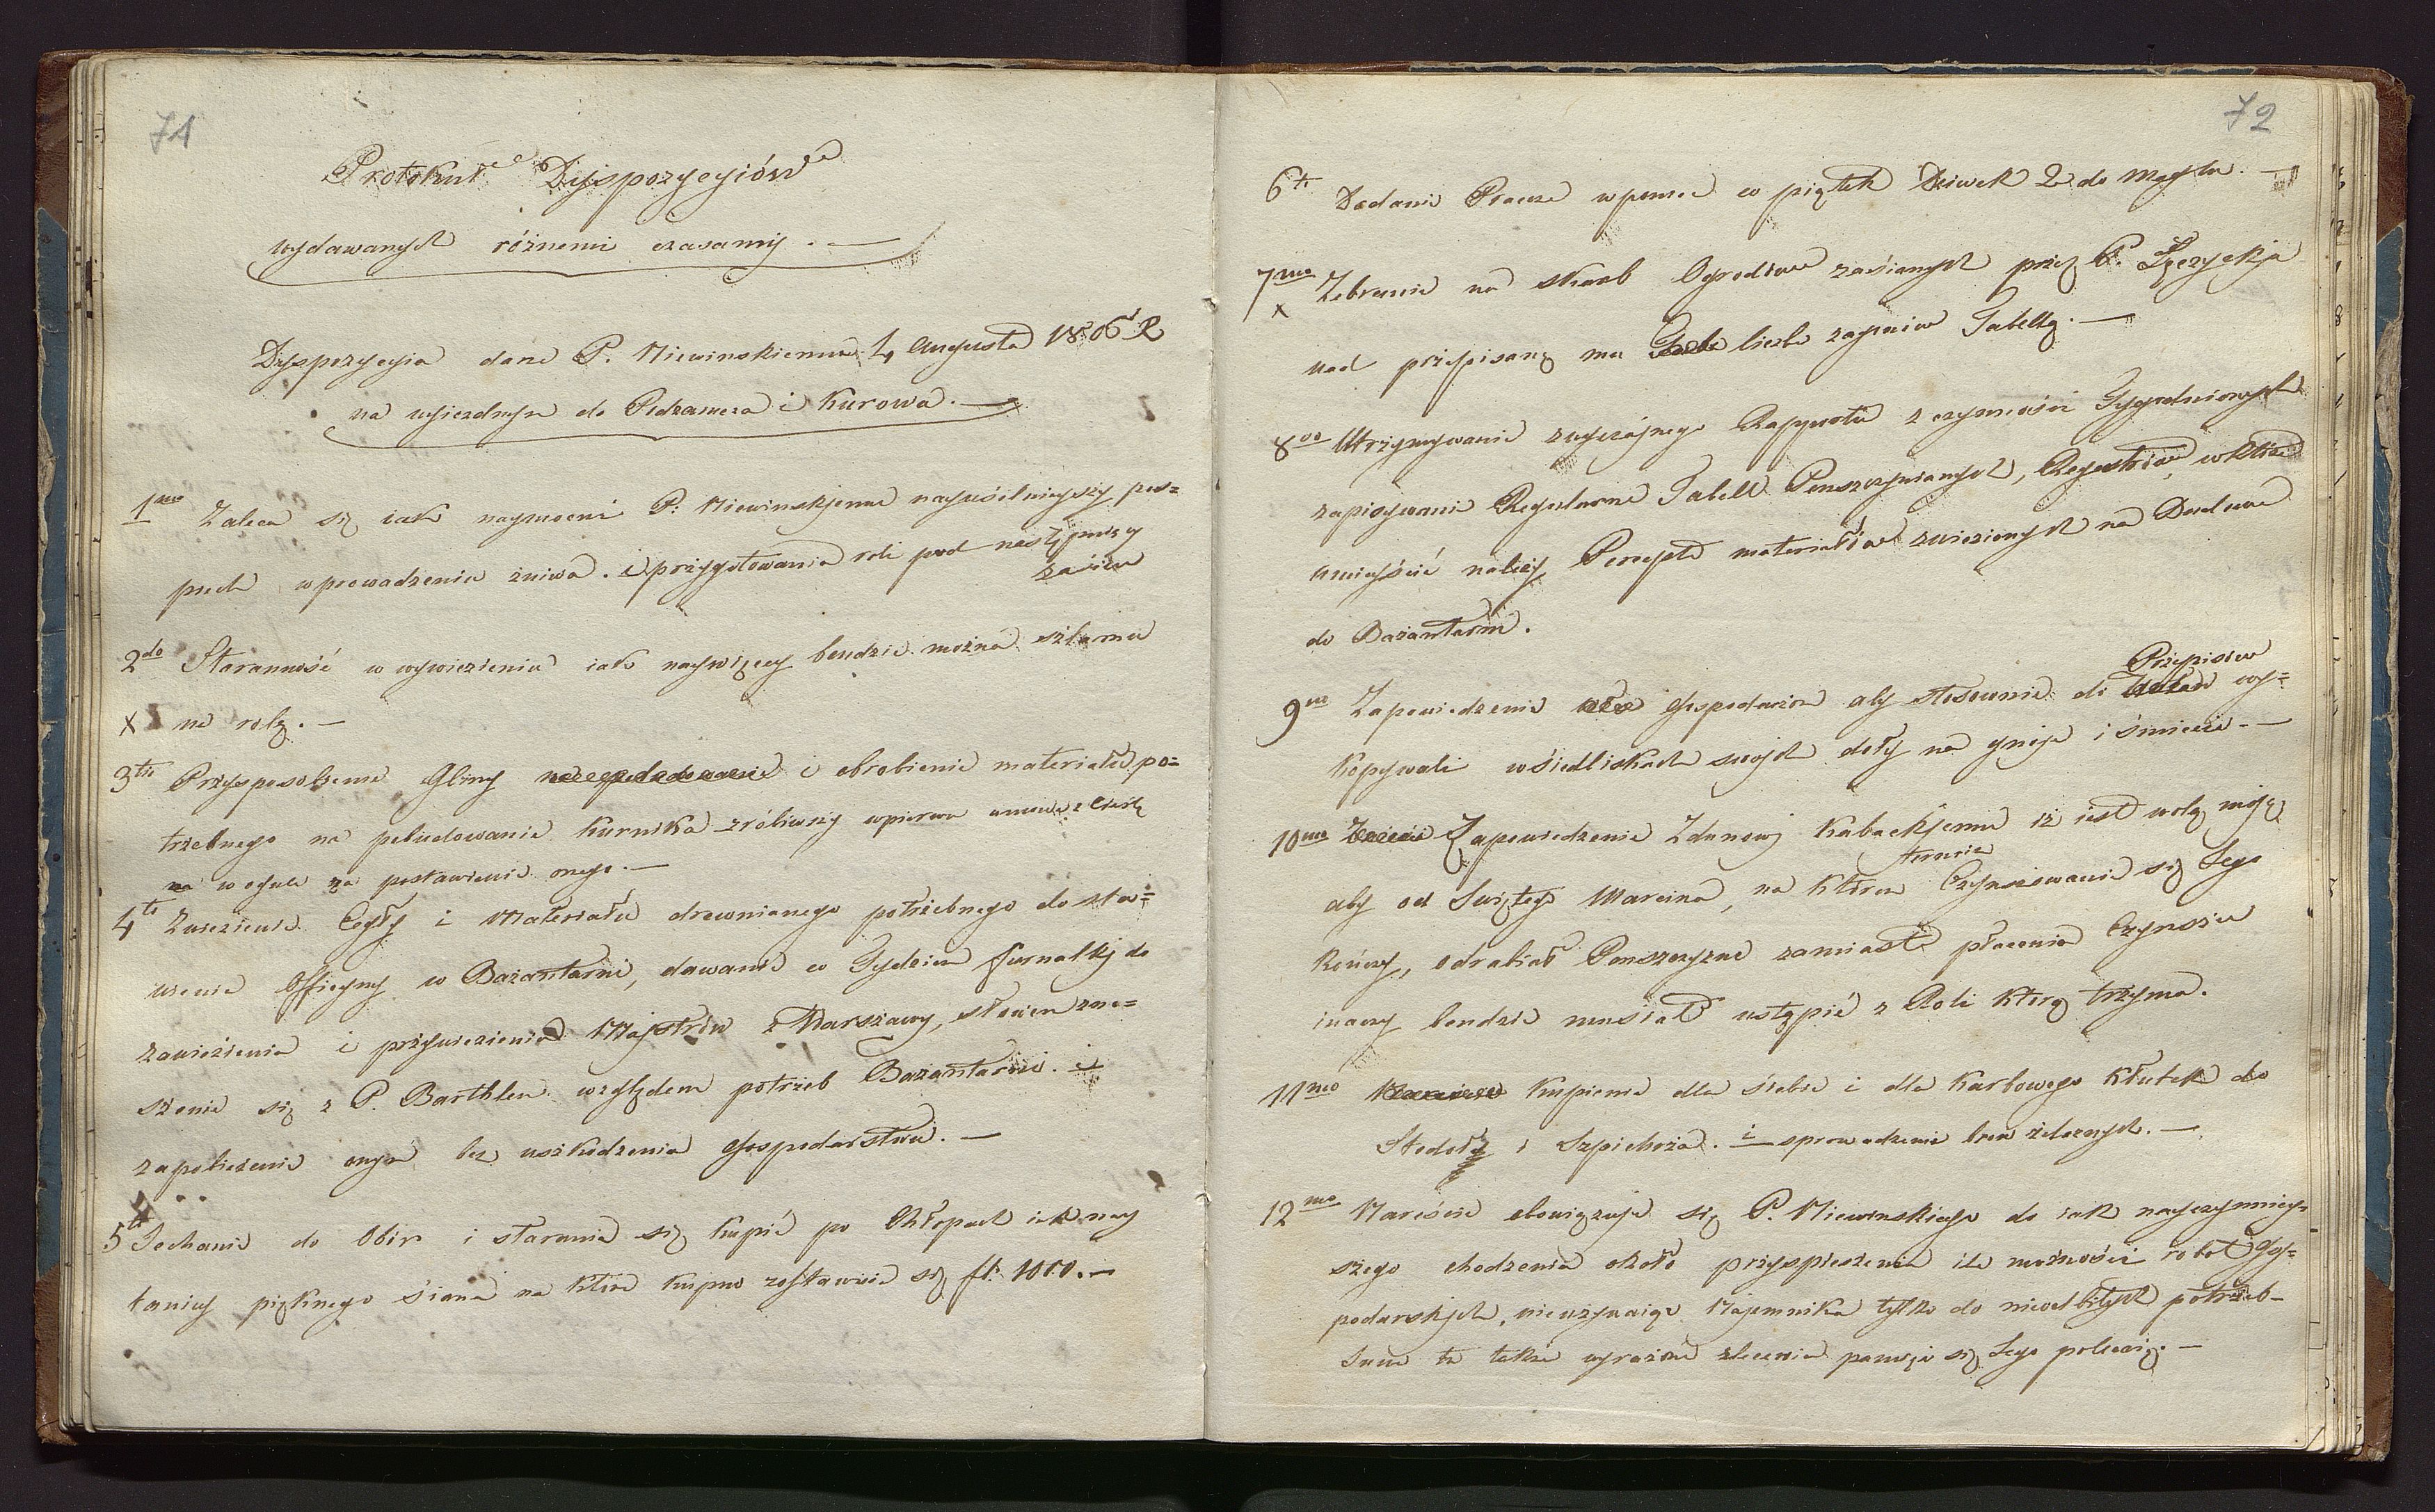 71
Protokuł Dyspozycyiów
wydawanych różnemi czasamy. —
Dyspozycyia dana P. Niewinskiemu 4 Augusta 1806 R
na wyiezdnym do Podzamcza i Kurowa. —
1mo Zaleca się iak naymocni P. Niewinskjemu nayusilnieyszy pos=
piech w prowadzeniu żniwa. i przygotowania roli pod następuiący
zasiew
2do Staranność w wywiezieniu iak naywięcy bendzie można szlamu
X na rolę. —
3tio Przysposobienie Gliny i obrobienie materiału po=
trzebnego na pobudowanie kurnika zróbiwszy wpierw umowę z Cieslą
w ogule za postawienie onego. —
4to Zwiezienie Cegły i Materiału drewnianego potrzebnego do sta=
wienia Officyny w Bażantarni, dawanie co Tydzien furnalkj do
zawieźienia i przywiezienia Majstrów z Warszawy, słowem zno=
szenie się z P. Barthlem względem potrzeb Bażantarni. i
zapobieżenie onym bez uszkodzenia Gospodarstwa. —
5to Jechanie do Obir i starania się kupić po Chłopach iak nay
taniey pięknego śiana na które kupno zostawuie się fl. 1000. —
72
6to Dodanie Pracze w pomoc co piątek Dziwek 2 do Magla. —
7mo Zebranie na skarb Ogrodów zasianych przez P. Łęczyckja
X
nad przepisaną mu liczbe zagonów Tabellą. —
8vo Utrzymywanie zwyczajnego Rapportu z czynności Tygodniowych
zapisywanie Regularne Tabell Penszczyznianych, Regestrów, w które
umieśćić należy Percepta materiałów zwiezionych na Budowe
do Bażantarni.
Przepisów
9no Zapowiedzenie Gospodarzom aby stosownie do wy=
kopywali w śiedliskach swojch doły na gnoje i śmiecie —
10mo Zapowiedzenie Zdunowj Kabackjemu iż iest wolą moją
terminie
aby od Swiętego Marcina, na którem Czynszowanie się Jego
kończy, odrabiał Penszczyzne zamiast płacenia Czynszu
inaczy bendzie musiał ustąpić z Roli którą trzyma.
11mo Kupienie dla śiebie i dla Karbowego kłutek do
Stodoły i Szpichrza. i sprowadzenie bron żelaznych. —
12mo Nareście obowięzuje się P. Niewinskiego do iak nayczynniey=
szego chodzenia około przyspieszenia ile możności robot Gos=
podarskjch, nieużywaiąc Najemnika tylko do nieodbitych potrzeb —
Inne te także wyrażone zlecenia pamięci się Jego polecaią. —